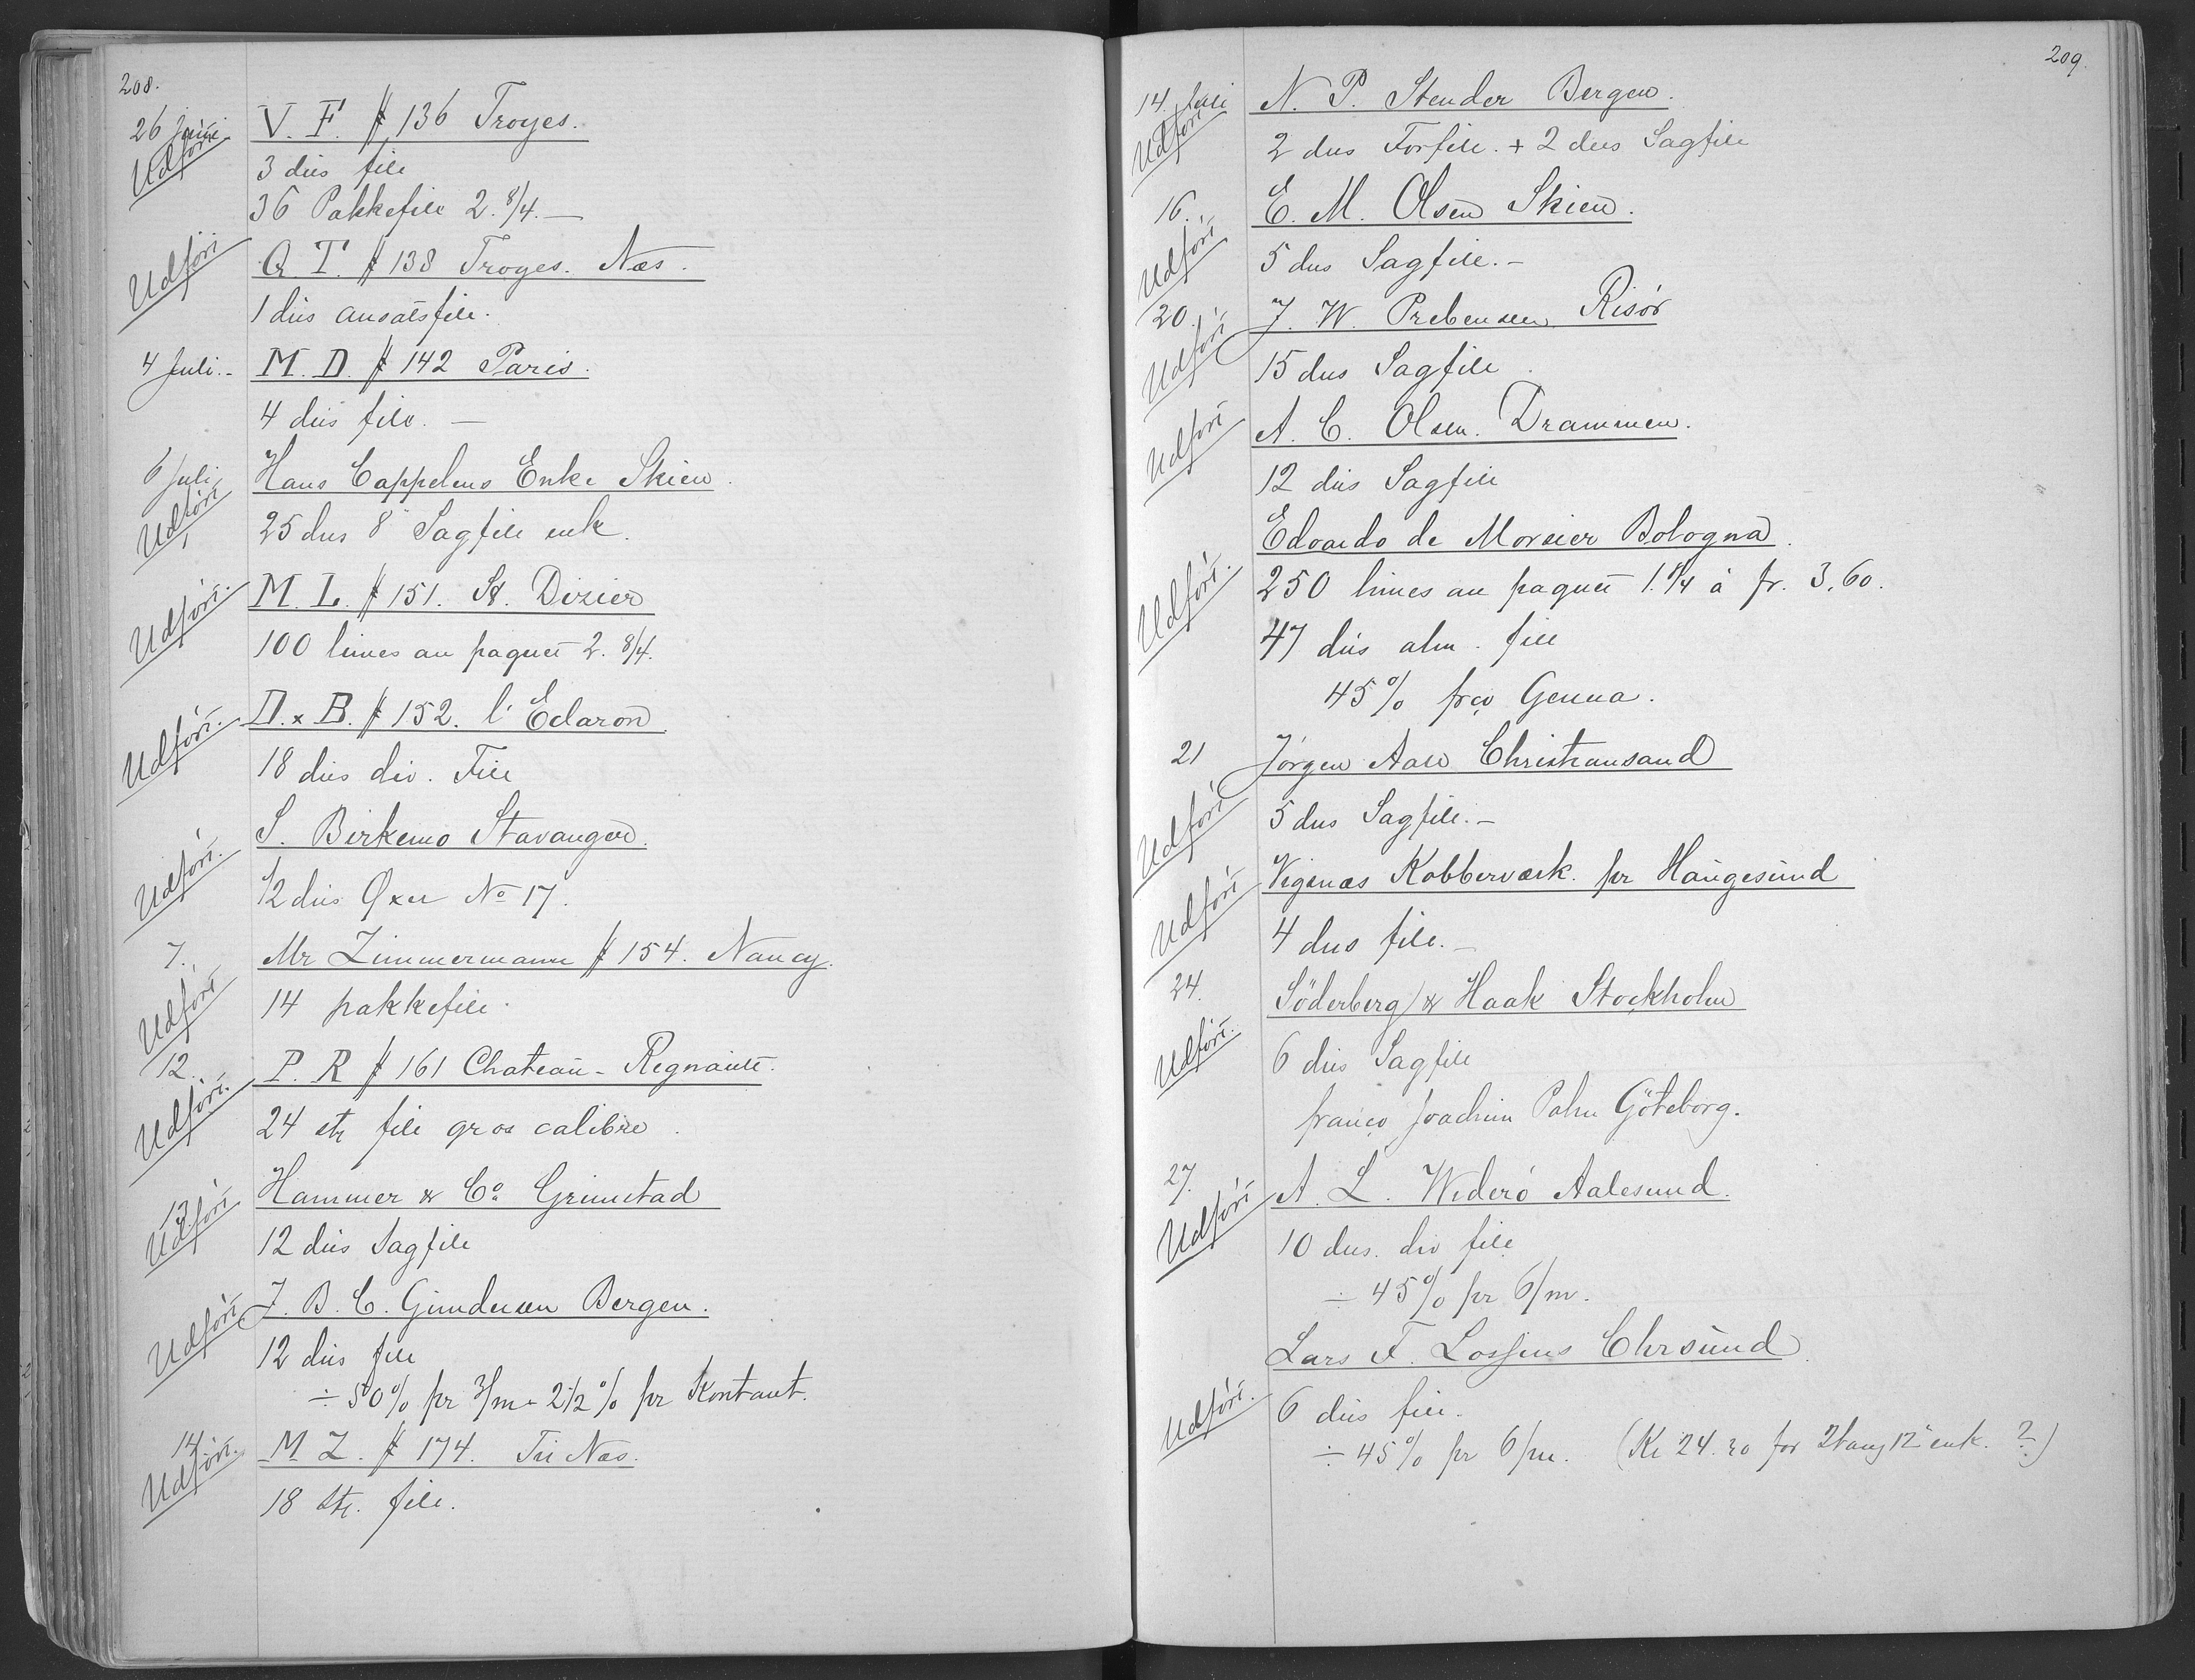 208.
26 Juni. V. F. # 136 Troyes.
Udført
3 dus file
36 Pakkefile 2. 8/4. —
Udført Q. T. # 138 Troyes. Næs.
1 dus ansatsfile.
4 Juli.- M. D. # 142 Paris.
4 dus file. —
6 Juli, Hans Cappelens Enke Skien.
Udført
25 dus 8" Sagfile enk.
Udført. M. L. # 151. St. Dizier
100 limes au paquet 2. 8/4.
Udført. D. x B. # 152. l'Eclaron
18 dus div. File
S. Birkemo Stavanger.
Udført.
1/2 dus Øxer No 17.
7. Mr Zimmermann # 154. Nancy.
Udført
14 pakkefile.
12. P. R # 161 Chateau-Regnault.
Udført.
24 stk file gros calibre.
13. Hammer & Co. Grimstad
Udført
12 dus Sagfile
Udført J. B. C. Gundersen Bergen.
12 dus file
÷ 50% pr 3/m - 2 1/2 % pr Kontant.
14. M Z. # 174. Tri Næs.
Udført.
18 stk. file.
209.
14. Juli N. P. Stender Bergen.
Udført
2 dus Forfile. + 2 dus Sagfile
16. E. M. Olsen Skien.
Udført
5 dus Sagfile.-
20. J. W. Prebensen Risør
Udført
15 dus Sagfile.
Udført A. C. Olsen. Drammen.
12 dus Sagfile
Edoardo de Morsier Bologna.
Udført. 250 limes au paquet 1. 8/4 à fr. 3,60.
47 dus alm. file
45% frco Genua.
21 Jørgen Aall Christiansand
Udført
5 dus Sagfile.-
Udført Vigsnæs Kobberværk. pr Haugesund
4 dus file.-
24. Söderberg & Haak Stockholm
Udført.
6 dus Sagfile
franco Joachim Palm Göteborg.
27. A. L. Widerø Aalesund.
Udført
10 dus. div file
÷ 45% pr 6/m.
Lars F. Lossius Chrsund.
Udført. 6 dus file.
÷ 45% pr 6/m. (Kr 24.20 for 12" enk. ?)